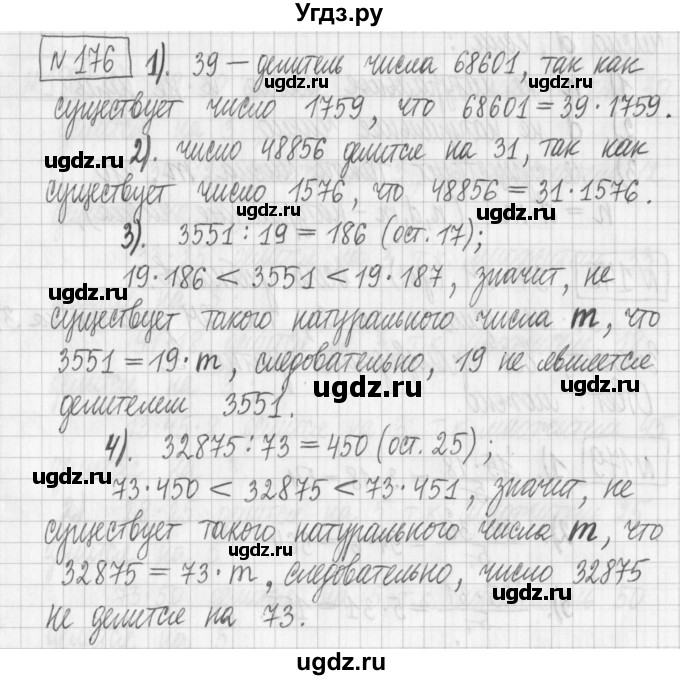 Угдз.ру
N 176 1). 39 — делитель числа 68601, так как
существует число 1759, что 68601 = 39 · 1759.
ugdz.ru 2). число 48856 делится на 31, так как ugdz.ru
существует число 1576, что 48856 = 31 · 1576.
ugdz.ru
3). 3551 : 19 = 186 (ост. 17);
ugdz.ru
19 · 186 < 3551 < 19 · 187, значит, не
ugdz.ru
существует такого натурального числа m, что
3551 = 19 · m, следовательно, 19 не является
ugdz.ru ugdz.ru
делителем 3551.
4). 32875 : 73 = 450 (ост. 25);
ugdz.ru ugdz.ru
73 · 450 < 32875 < 73 · 451, значит, не
существует такого натурального числа m, что
ugdz.ru
32875 = 73 · m, следовательно, число 32875
ugdz.ru
не делится на 73.
ugdz.ru